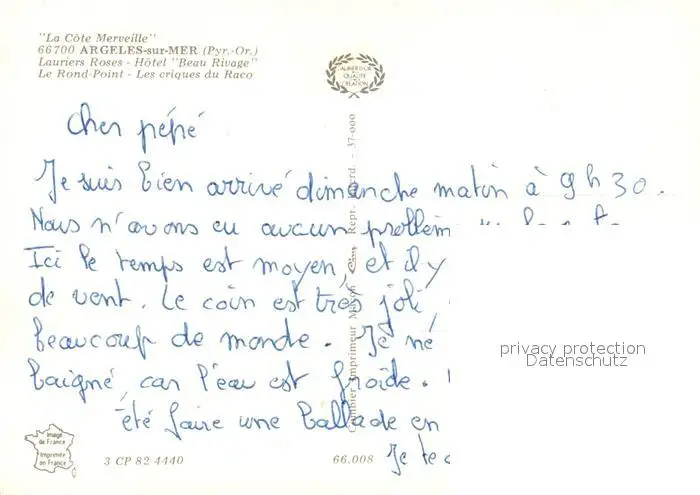 "La Côte Merveille"
66700 ARGELES-sur-MER (Pyr.-Or.)
Lauriers Roses - Hôtel "Beau Rivage"
Le Rond-Point - Les criques du Raco
LAURIER D'OR
DE LA
QUALITÉ
DE LA
CRÉATION
Combier Imprimeur Macon Cim Repr. 37-000
Cher pépé
Je suis bien arrivé dimanche matin à 9 h 30.
Nous n'avons eu aucun problèm
Ici le temps est moyen, et il y
de vent. Le coin est très joli,
beaucoup de monde. Je né
baigné, car l'eau est froide.
été faire une ballade en
Je te
privacy protection
Datenschutz
Image
de France
Imprimée
en France
3 CP 82 4440
66.008